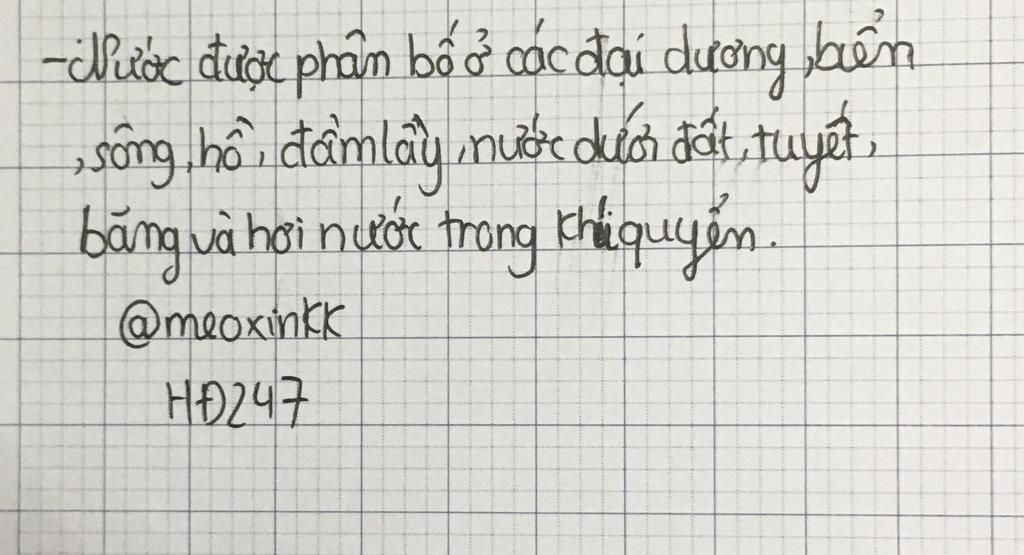 -Nước được phân bố ở các đại dương, biển
, sông, hồ, đầm lầy, nước dưới đất, tuyết,
băng và hơi nước trong khí quyển.
@meoxinkk
HĐ247